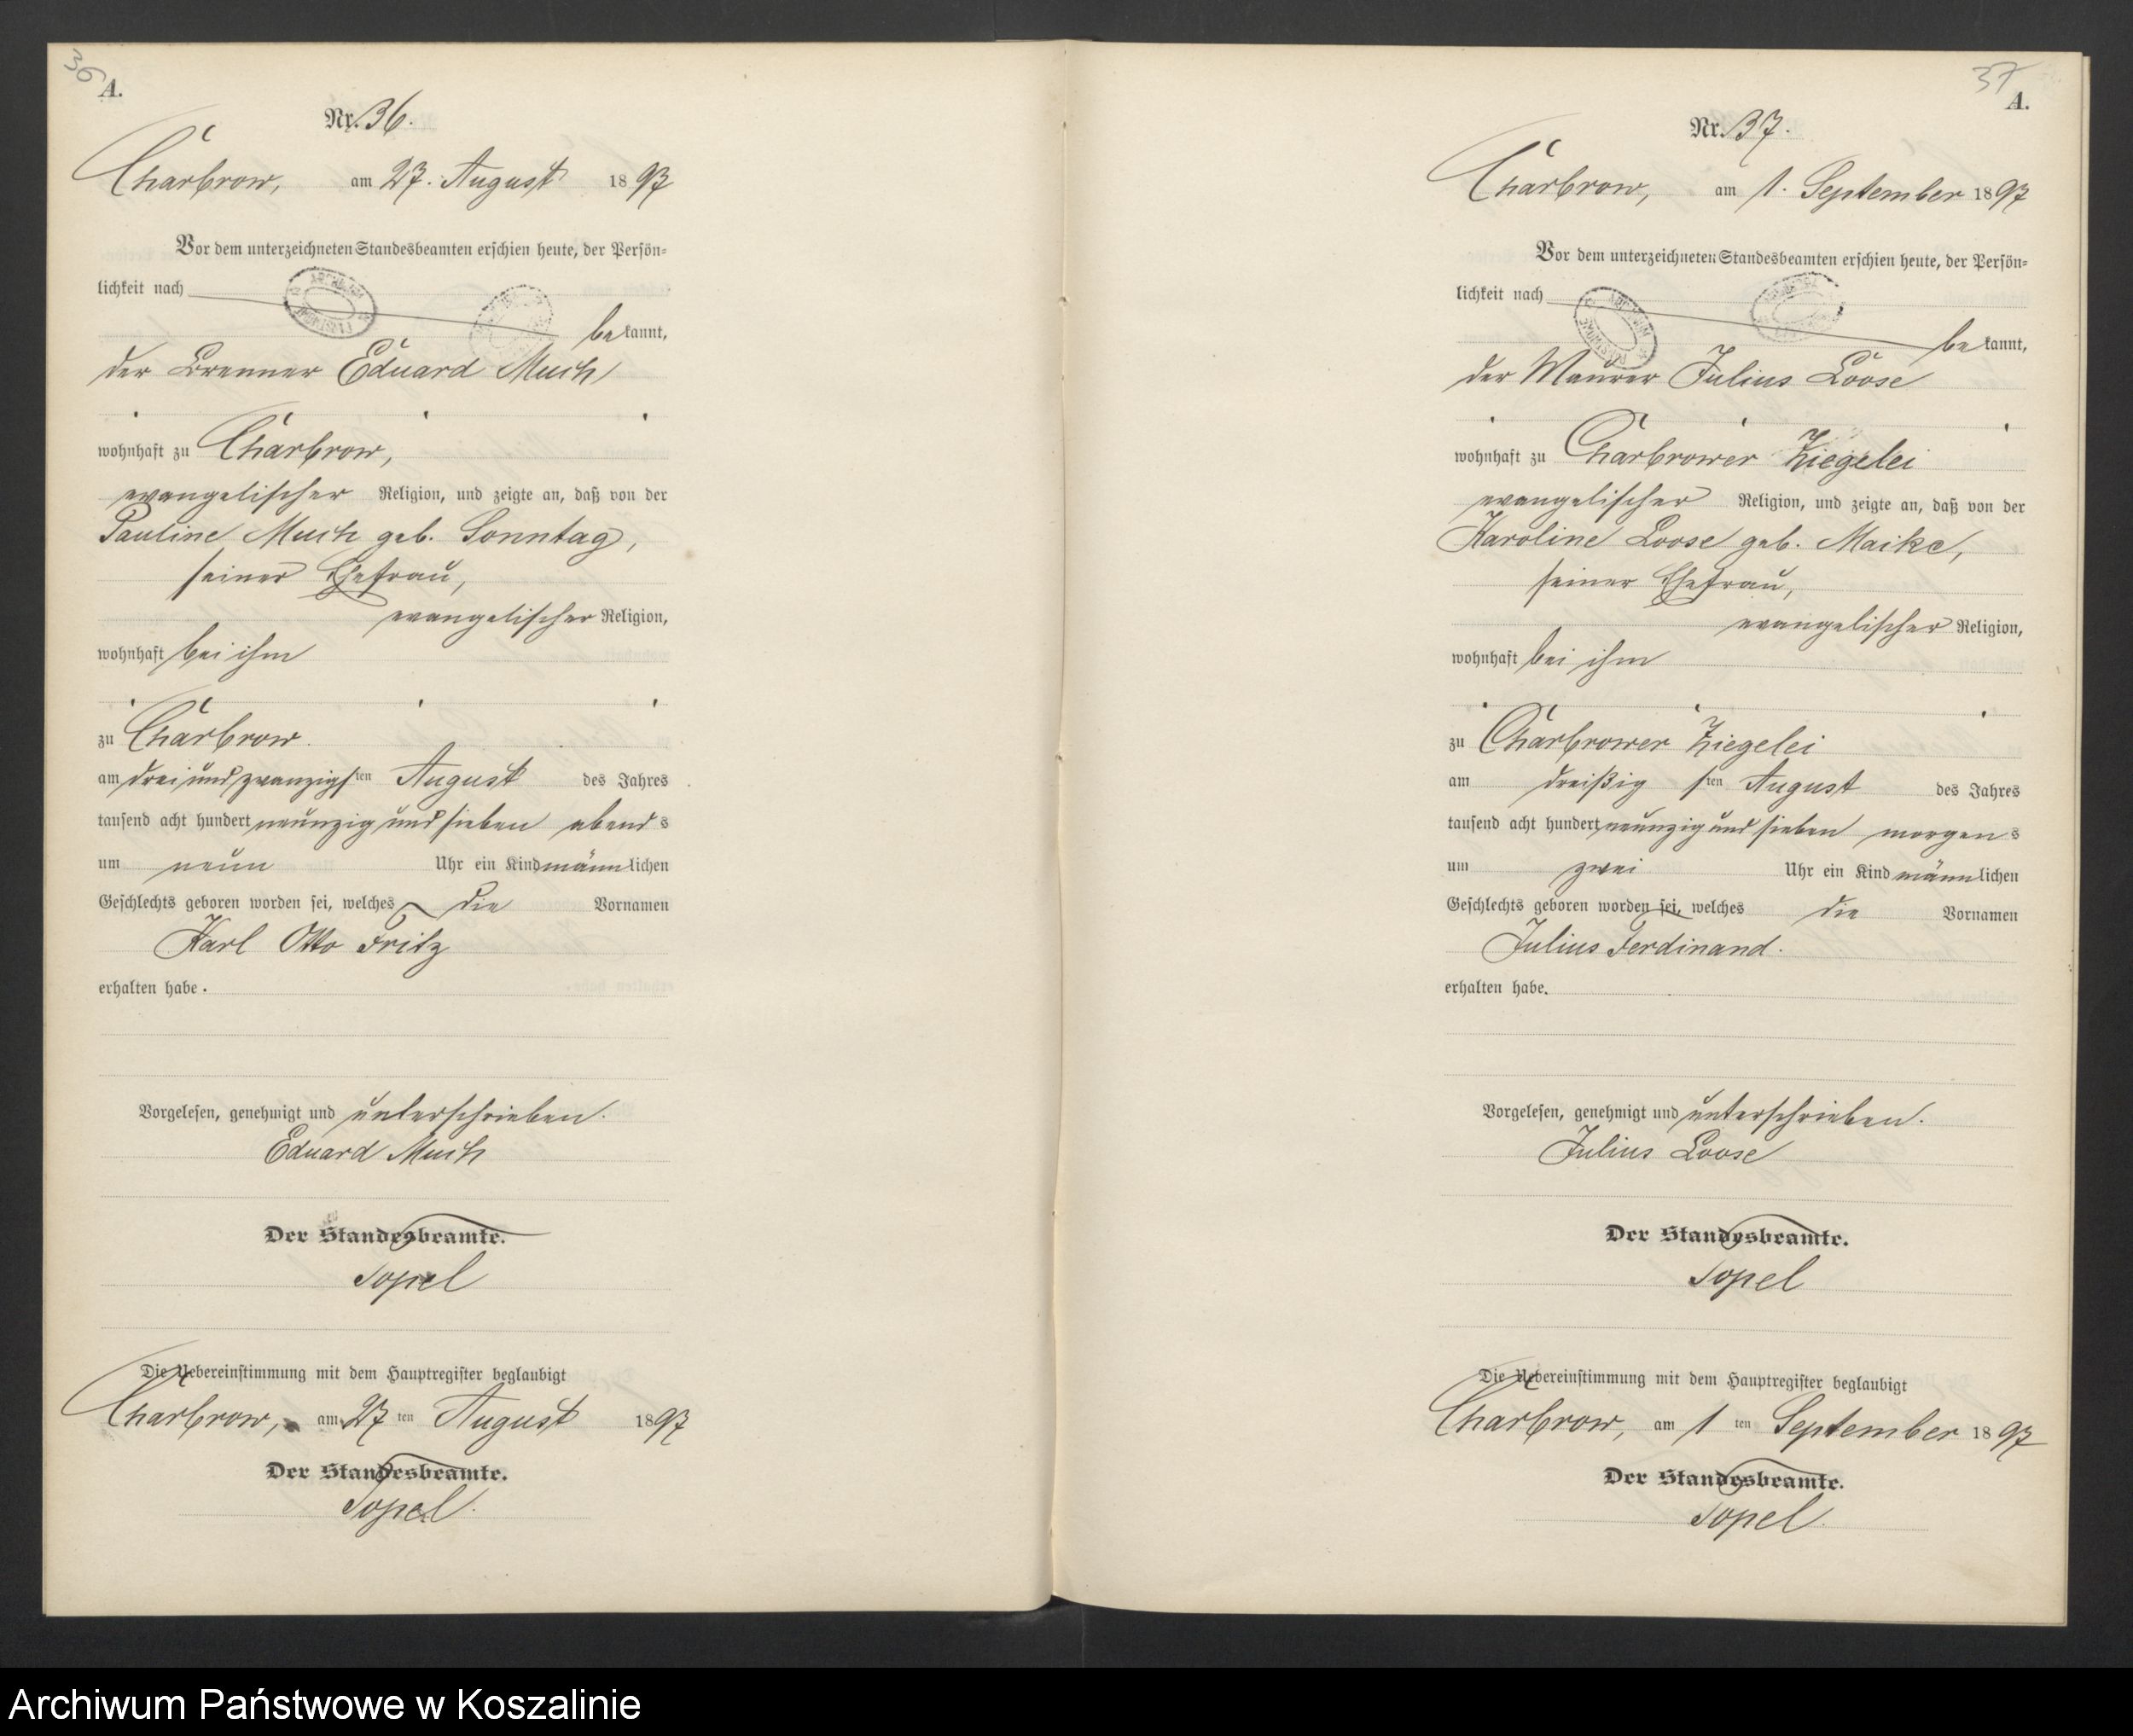 36
A.
Nr. 36.
Charbrow, am 27. August 1897
Vor dem unterzeichneten Standesbeamten erschien heute, der Persön-
lichkeit nach
bekannt,
der Brenner Eduard Much
wohnhaft zu Charbrow,
evangelischer Religion, und zeigte an, daß von der
Pauline Much geb. Sonntag,
seiner Ehefrau,
evangelischer Religion,
wohnhaft bei ihm
zu Charbrow.
am dreiundzwanzigsten August des Jahres
tausend acht hundert neunzig und sieben abends
um neun Uhr ein Kind männlichen
Geschlechts geboren worden sei, welches die Vornamen
Karl Otto Fritz
erhalten habe.
Vorgelesen, genehmigt und unterschrieben.
Eduard Much
Der Standesbeamte.
Topel
Die Uebereinstimmung mit dem Hauptregister beglaubigt
Charbrow, am 27ten August 1897
Der Standesbeamte.
Topel.
37
A.
Nr. 37.
Charbrow, am 1. September 1897
Vor dem unterzeichneten Standesbeamten erschien heute, der Persön-
lichkeit nach
bekannt,
der Maurer Julius Loose
wohnhaft zu Charbrower Ziegelei
evangelischer Religion, und zeigte an, daß von der
Karoline Loose geb. Maike,
seiner Ehefrau,
evangelischer Religion,
wohnhaft bei ihm
zu Charbrower Ziegelei
am dreißigsten August des Jahres
tausend acht hundert neunzig und sieben morgens
um zwei Uhr ein Kind männlichen
Geschlechts geboren worden sei, welches die Vornamen
Julius Ferdinand.
erhalten habe.
Vorgelesen, genehmigt und unterschrieben.
Julius Loose
Der Standesbeamte.
Topel
Die Uebereinstimmung mit dem Hauptregister beglaubigt
Charbrow, am 1ten September 1897
Der Standesbeamte.
Topel.
Archiwum Państwowe w Koszalinie